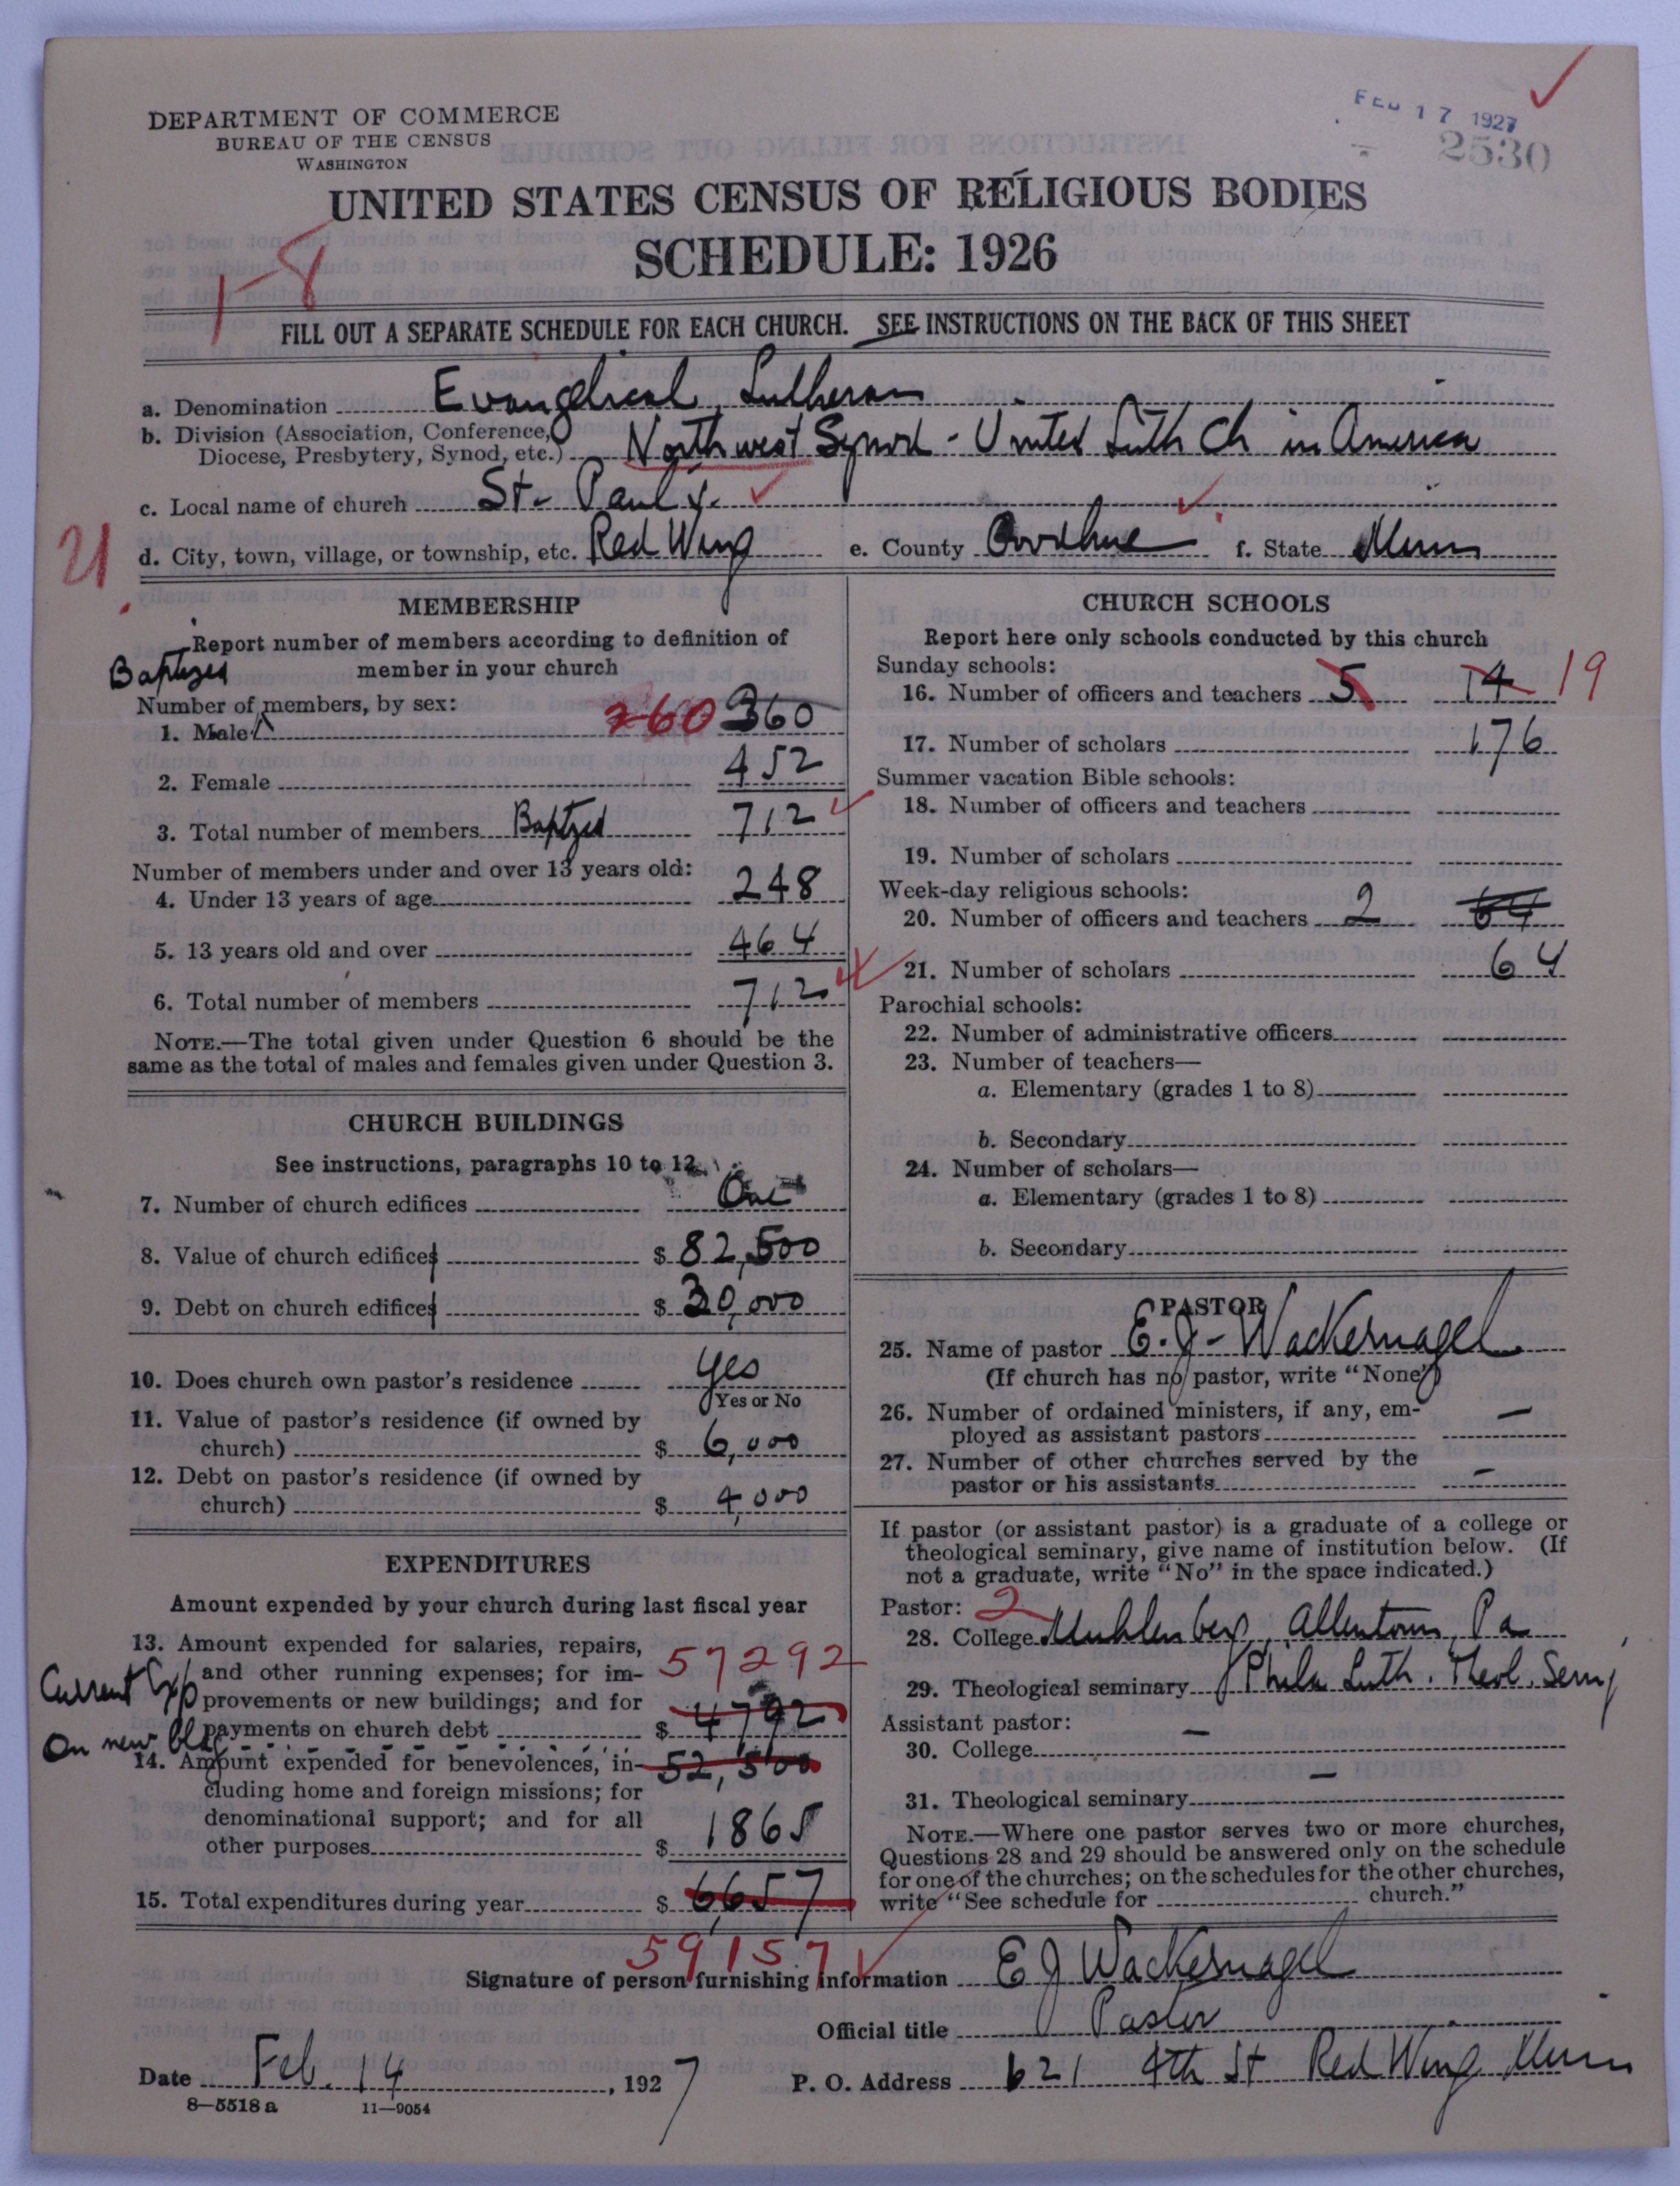 DEPARTMENT OF COMMERCE
BUREAU OF THE CENSUS
WASHINGTON
FEB 17 1927
2530
UNITED STATES CENSUS OF RELIGIOUS BODIES
SCHEDULE: 1926
1-8
FILL OUT A SEPARATE SCHEDULE FOR EACH CHURCH. SEE INSTRUCTIONS ON THE BACK OF THIS SHEET
a. Denomination Evangelical Lutheran
b. Division (Association, Conference,
Diocese, Presbytery, Synod, etc.) Northwest Synod - United Luth Ch in America
c. Local name of church St. Paul's
21
d. City, town, village, or township, etc. Red Wing e. County Goodhue f. State Minn
MEMBERSHIP
Report number of members according to definition of
member in your church
Baptized
Number of members, by sex:
1. Male 260 360
2. Female 452
3. Total number of members Baptized 712
Number of members under and over 13 years old:
4. Under 13 years of age 248
5. 13 years old and over 464
6. Total number of members 712
NOTE.—The total given under Question 6 should be the
same as the total of males and females given under Question 3.
CHURCH BUILDINGS
See instructions, paragraphs 10 to 12
7. Number of church edifices One
8. Value of church edifices $ 82,500
9. Debt on church edifices $ 30,000
10. Does church own pastor's residence Yes
Yes or No
11. Value of pastor's residence (if owned by
church) $ 6,000
12. Debt on pastor's residence (if owned by
church) $ 4,000
EXPENDITURES
Amount expended by your church during last fiscal year
13. Amount expended for salaries, repairs,
and other running expenses; for im- 57292
Current Exp provements or new buildings; and for
payments on church debt $ 4792
On new bldg
14. Amount expended for benevolences, in- 52,500
cluding home and foreign missions; for
denominational support; and for all
other purposes $ 1865
15. Total expenditures during year $ 6657
59157
CHURCH SCHOOLS
Report here only schools conducted by this church
Sunday schools:
16. Number of officers and teachers 5 14 19
17. Number of scholars 176
Summer vacation Bible schools:
18. Number of officers and teachers
19. Number of scholars
Week-day religious schools:
20. Number of officers and teachers 2 64
21. Number of scholars 64
Parochial schools:
22. Number of administrative officers
23. Number of teachers—
a. Elementary (grades 1 to 8)
b. Secondary
24. Number of scholars—
a. Elementary (grades 1 to 8)
b. Secondary
PASTOR
25. Name of pastor E. J. Wackernagel
(If church has no pastor, write "None")
26. Number of ordained ministers, if any, em-
ployed as assistant pastors —
27. Number of other churches served by the
pastor or his assistants —
If pastor (or assistant pastor) is a graduate of a college or
theological seminary, give name of institution below. (If
not a graduate, write "No" in the space indicated.)
Pastor: 2
28. College Muhlenberg, Allentown, Pa
29. Theological seminary Phila Luth. Theol. Semy
Assistant pastor:
30. College —
31. Theological seminary —
NOTE.—Where one pastor serves two or more churches,
Questions 28 and 29 should be answered only on the schedule
for one of the churches; on the schedules for the other churches,
write "See schedule for church."
Signature of person furnishing information E J Wackernagel
Official title Pastor
Date Feb. 14, 1927 P. O. Address 621 4th St Red Wing Minn
8—5518 a 11—9054